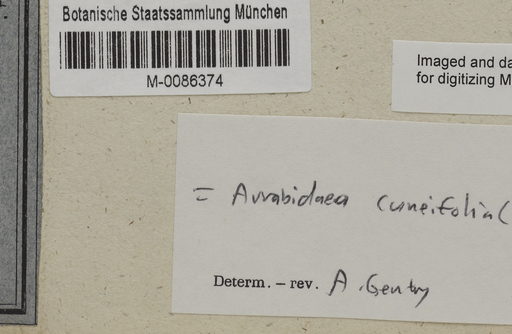 Botanische Staatssammlung München
M-0086374
Imaged and da
for digitizing M
= Arrabidaea cuneifolia (
Determ. – rev. A. Gentry